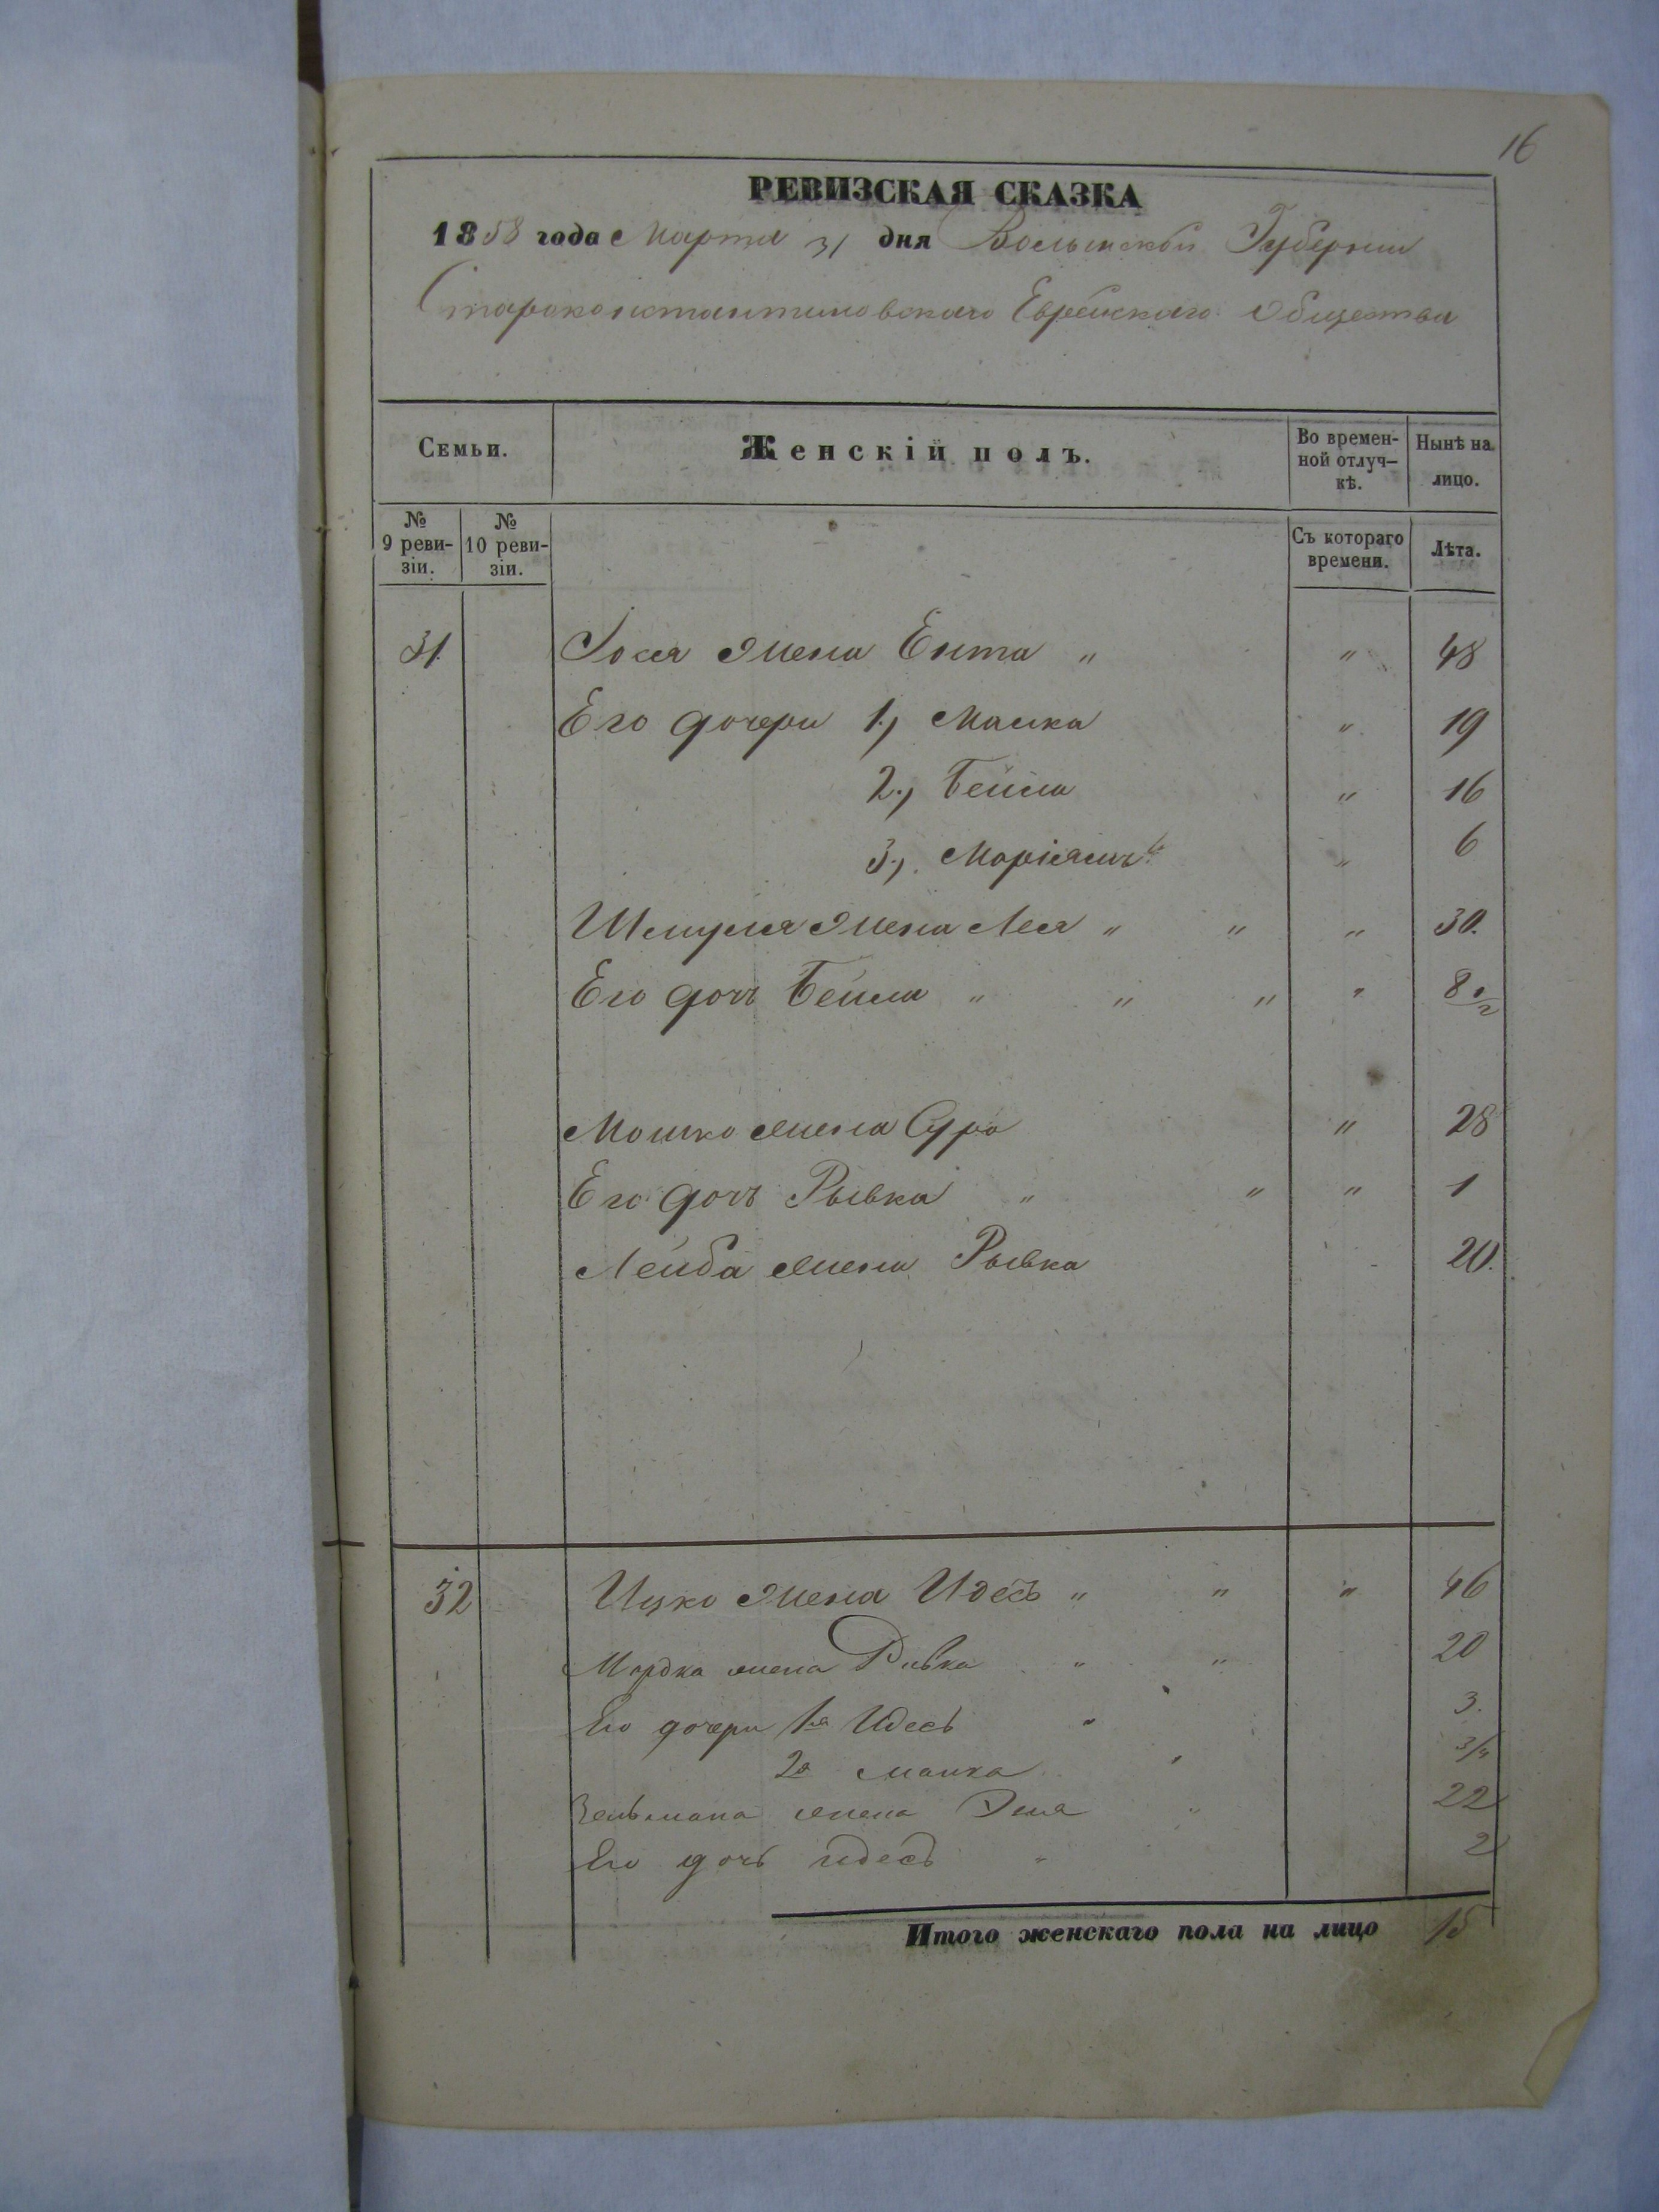 16
РЕВИЗСКАЯ СКАЗКА
1858 года Марта 31 дня Волынской Губернии
Староконстантиновскаго Еврейскаго Общества
Семьи.
Женскій полъ.
Во времен-
ной отлуч-
кѣ.
Нынѣ на
лицо.
№
9 реви-
зіи.
№
10 реви-
зіи.
Съ котораго
времени.
Лѣта.
31. Іося жена Ента " " 48
Его дочери 1., Маика " 19
2., Бейла " 16
3., " 6
Шмуля жена Лея " " " 30.
Его дочь Бейла " " " " 8 1/2
Мошко жена Сура " 28
Его дочь Рывка " " " 1
Лейба жена Рывка 20.
32 Ицко жена Идесъ " " " 46
Мордка жена Ривка " " 20
Его дочери 1я Идесь " 3.
2я Маика " 3/4
Зельмана жена " 22
Его дочь Идесъ " 2
Итого женскаго пола на лицо 15